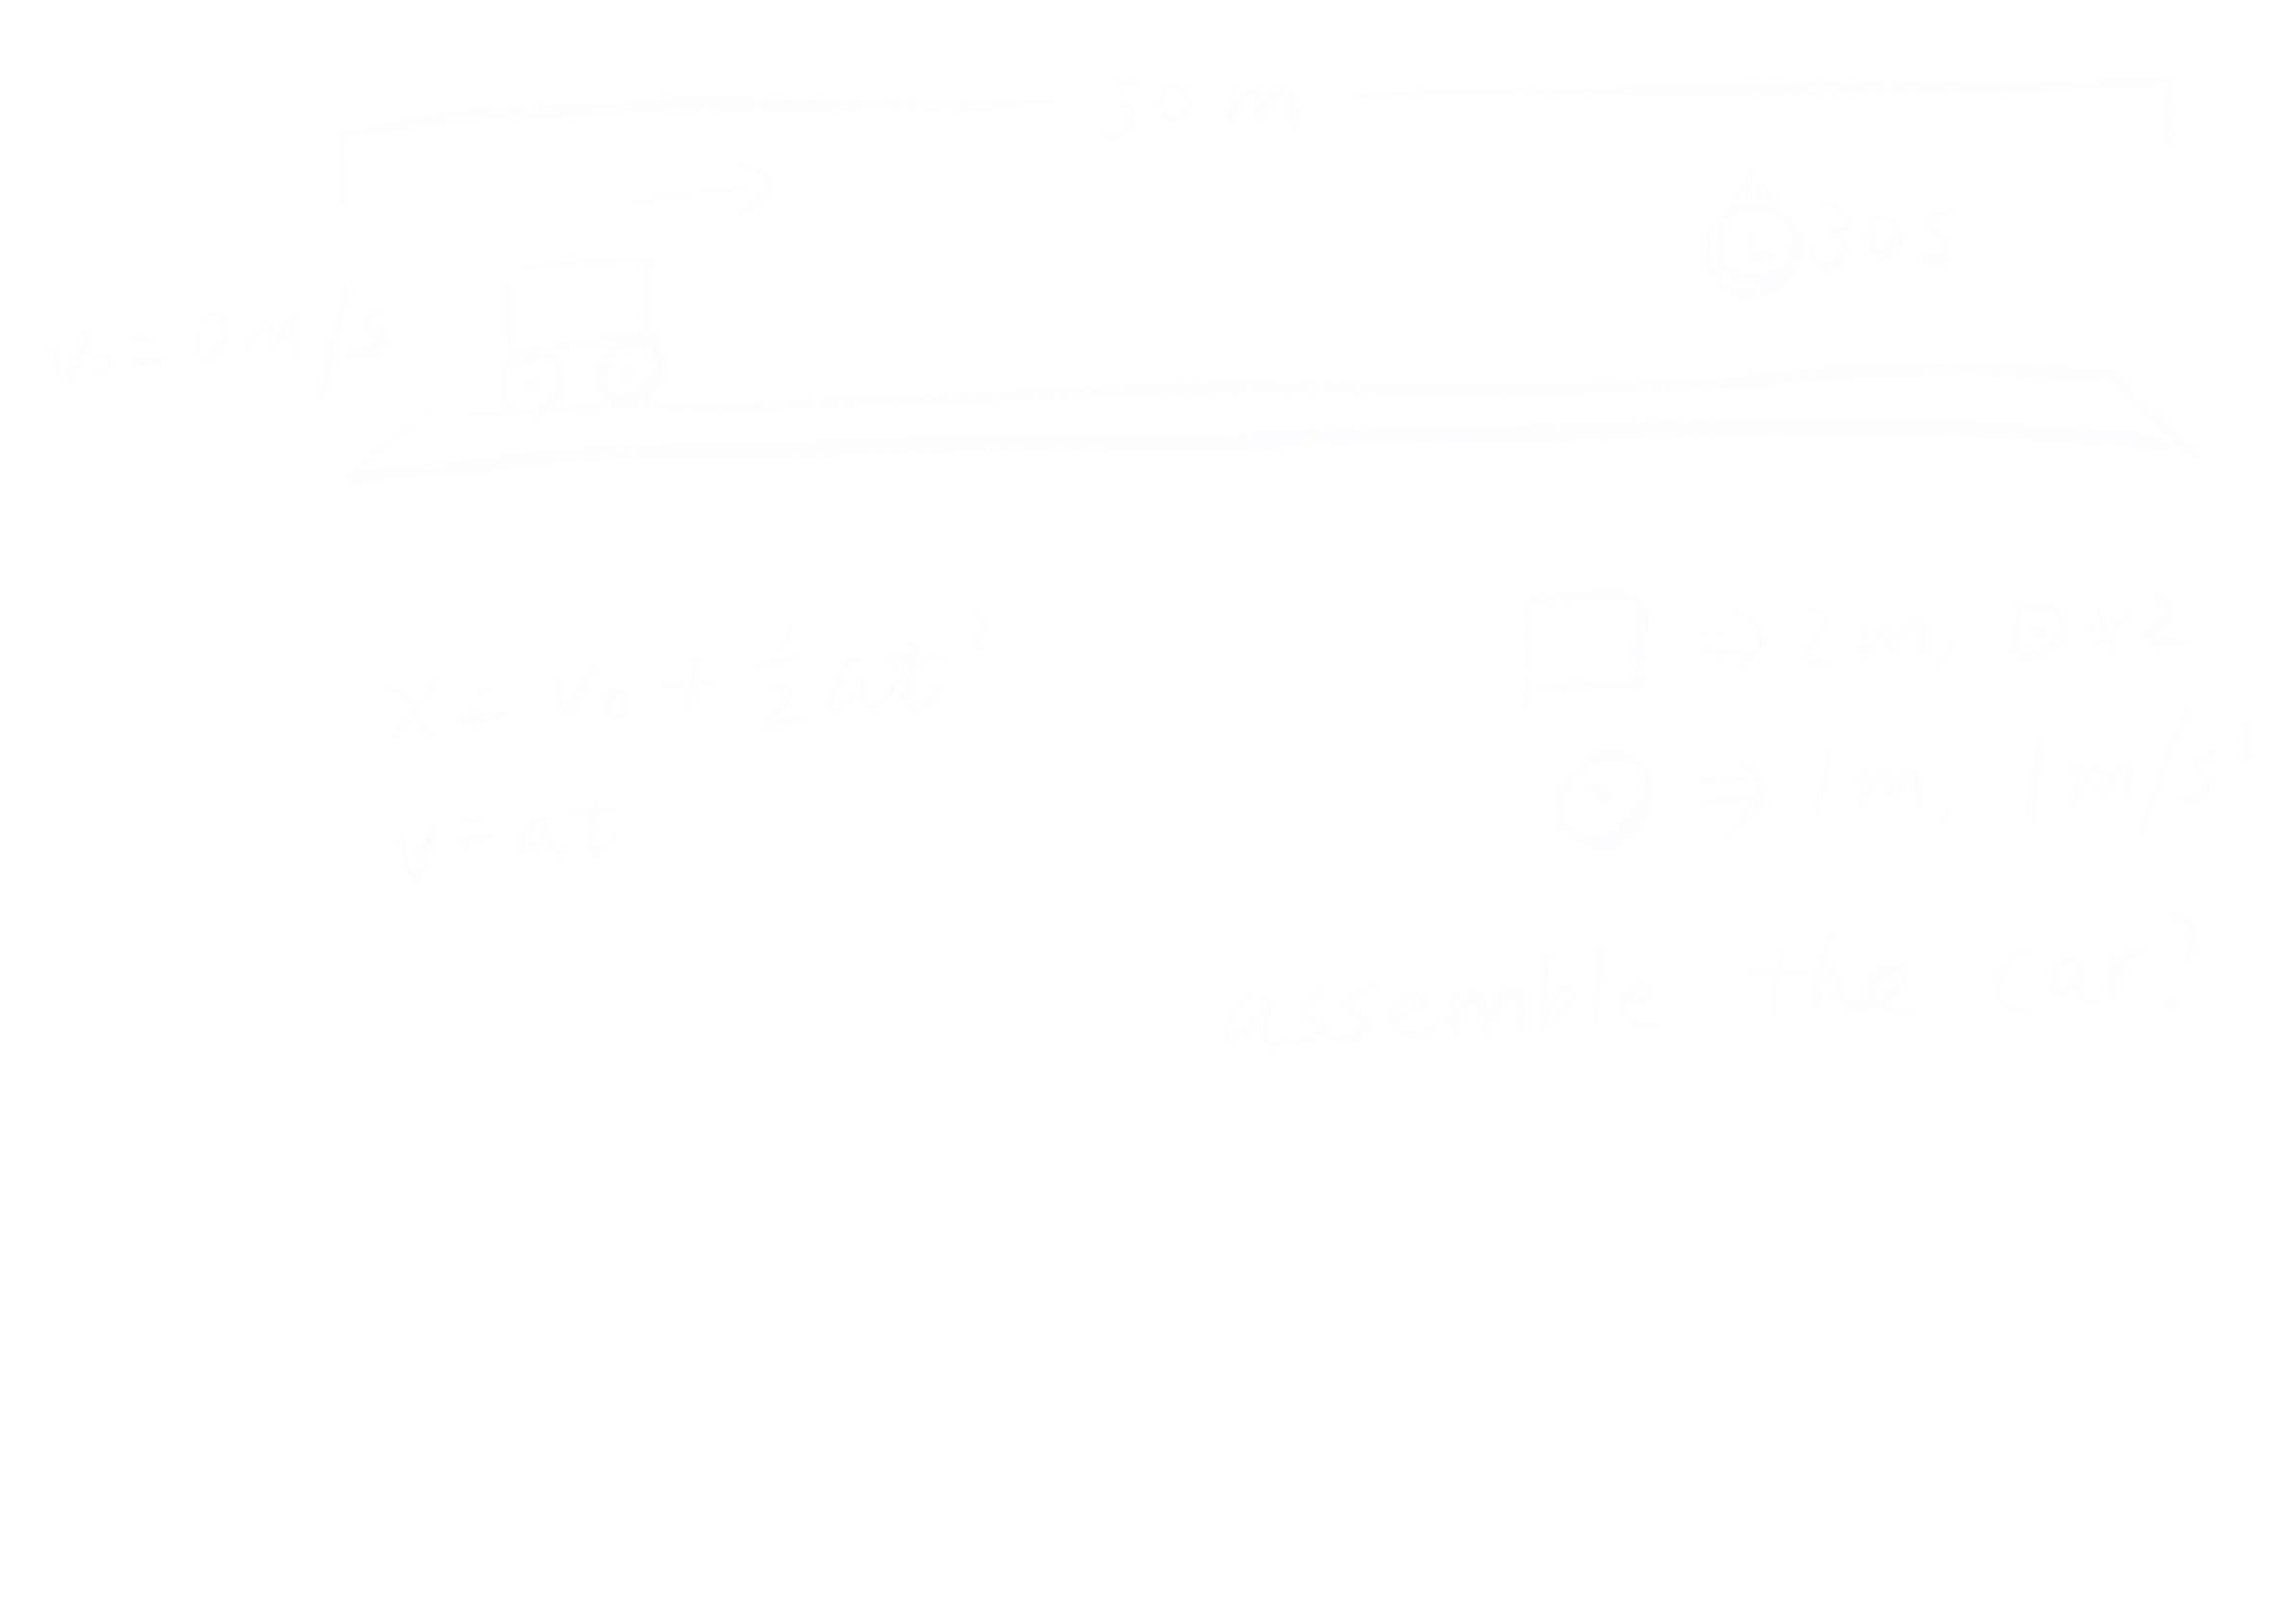 50 m
30s
v₀ = 0 m/s
x = v₀ + ½at²
⇒ 2m, ⊙×2
v = at
⇒ 1m, 1m/s²
assemble the car?